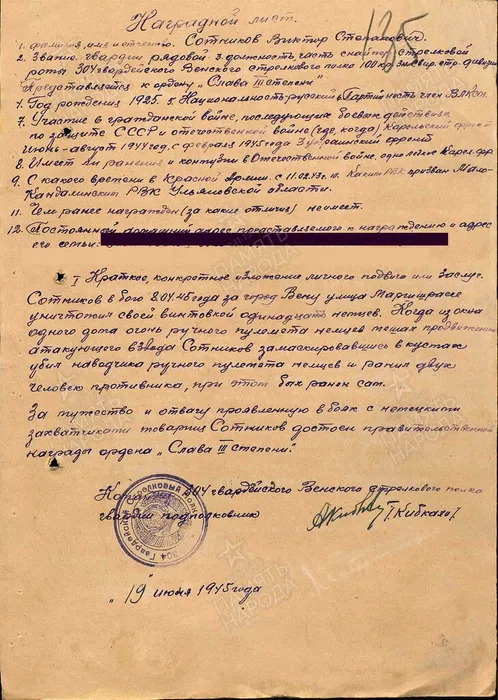 135
Наградной лист.
1. Фамилия, имя и отчество. Сотников Виктор Степанович.
2. Звание гвардии рядовой 3. должность, часть снайпер стрелковой
роты 304 гвардейского Венского стрелкового полка 100 гв. Свир. стр. дивизии
Представляется к ордену „Слава III степени"
4. Год рождения 1925. 5. Национальность русский 6. Партийность член ВЛКСМ.
7. Участие в гражданской войне, последующих боевых действиях
по защите СССР и отечественной войне (где, когда) Карельский фронт
июнь-август 1944 год, с февраля 1945 года 3 Украинский фронт
8. Имеет ли ранения и контузии в Отечественной войне. одно легкое Карел. фр.
9. С какого времени в Красной Армии. с 11.02.43г. 10. Каким РВК призван Мало-
Кандалинским РВК Ульяновской области.
11. Чем ранее награжден (за какие отличия) не имеет.
12. Постоянный домашний адрес представляемого к награждению и адрес
его семьи:
I Краткое, конкретное изложение личного подвига или заслуг.
Сотников в бою 8.04.45 года за город Вену улица
уничтожил своей винтовкой одинадцать немцев. Когда из окна
одного дома огонь ручного пулемета немцев мешал продвижению
атакующего взвода Сотников замаскировавшись в кустах
убил наводчика ручного пулемета немцев и ранил двух
человек противника, при этом был ранен сам.
За мужество и отвагу проявленную в боях с немецкими
захватчиками товарищ Сотников достоен правительственной
награды ордена „Слава III степени."
304 гвардейского Венского стрелкового полка
гвардии подполковник
/Кибкало/
304 Гвардейский Стрелковый Полк
„19" июня 1945 года
ПАМЯТЬ НАРОДА
ПАМЯТЬ НАРОДА
ПАМЯТЬ НАРОДА